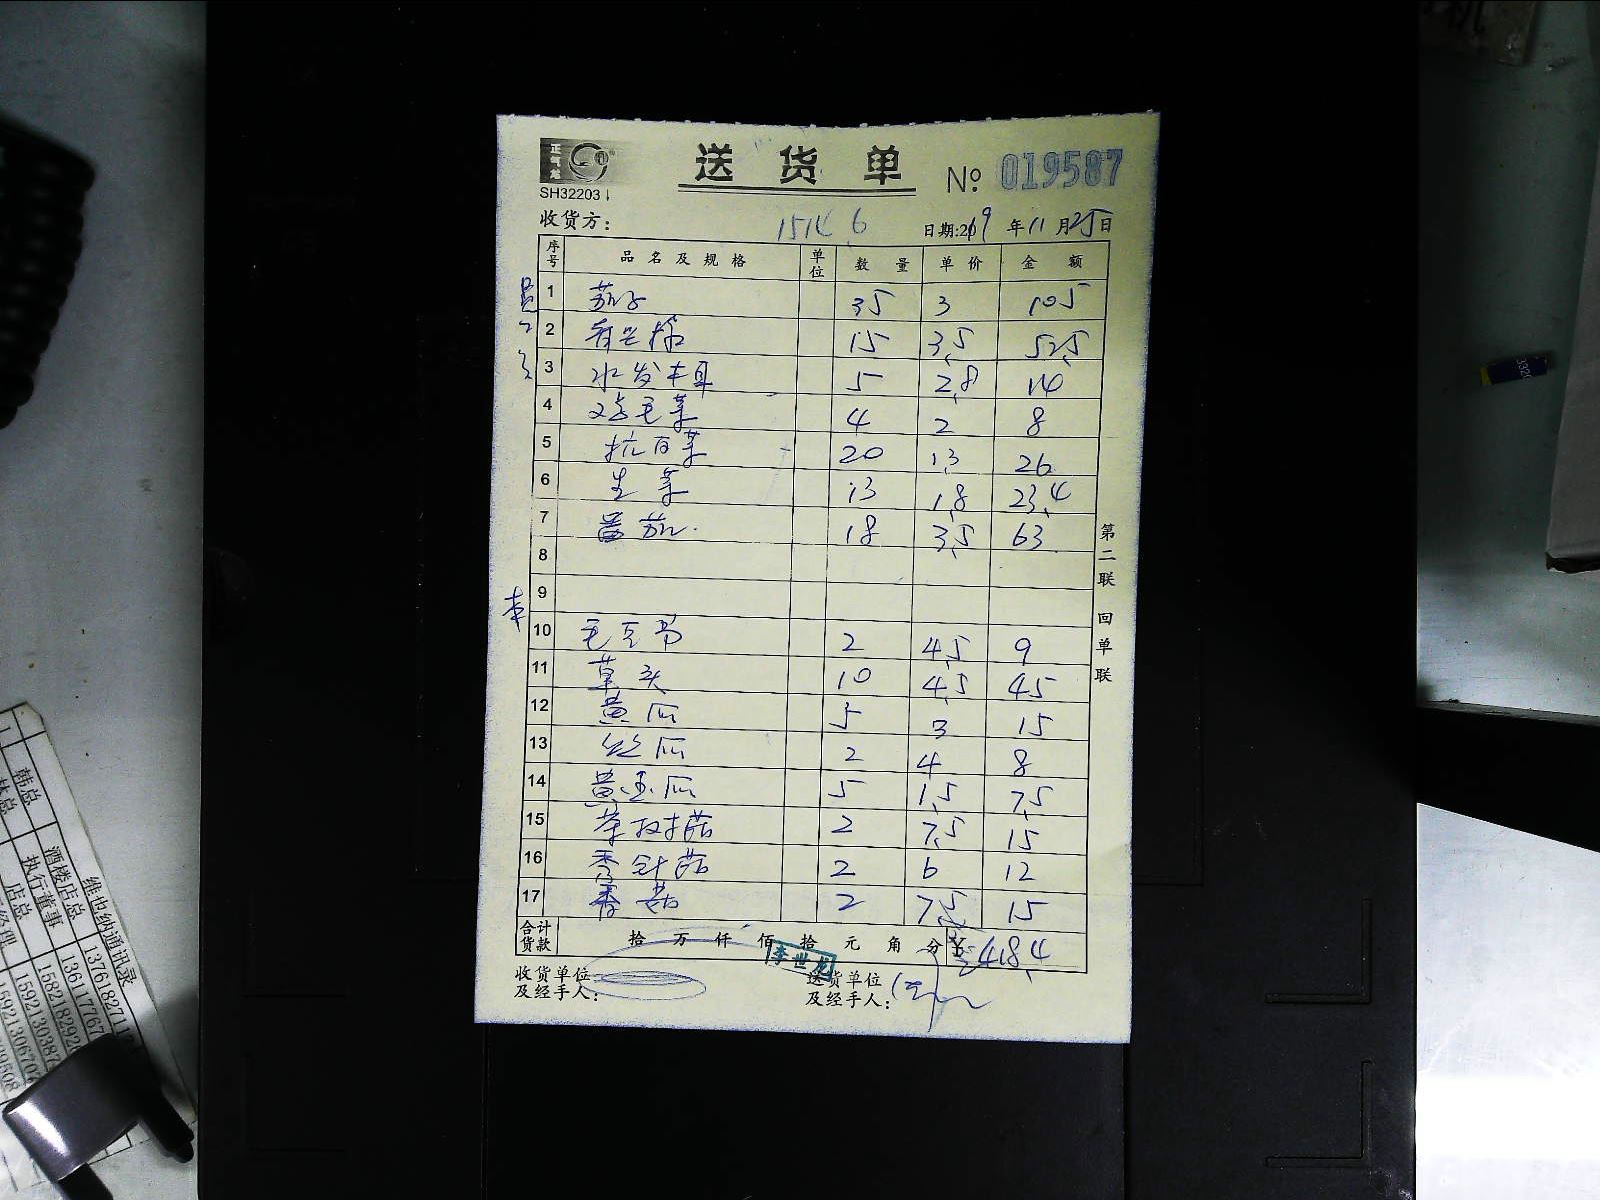 正气龙
送货单 № 019587
SH32203
收货方: 日期:2019年11月25日
序号 品名及规格 单位 数量 单价 金额
1 茄子 35 3 105
2 15 3.5 52.5
3 水发木耳 5 2.8 14
4 鸡毛菜 4 2 8
5 杭白菜 20 1.3 26
6 生菜 13 1.8 23.4
7 番茄 18 3.5 63
8
9
10 毛豆 2 4.5 9
11 草头 10 4.5 45
12 黄瓜 5 3 15
13 丝瓜 2 4 8
14 黄金瓜 5 1.5 7.5
15 茶树菇 2 7.5 15
16 金针菇 2 6 12
17 香菇 2 7.5 15
合计货款 拾 万 仟 佰 拾 元 角 分 ¥ 418.4
李世龙
收货单位及经手人: 送货单位及经手人:
第二联 回单联
维也纳通讯录
韩总
林总
酒楼店总
执行董事
店总